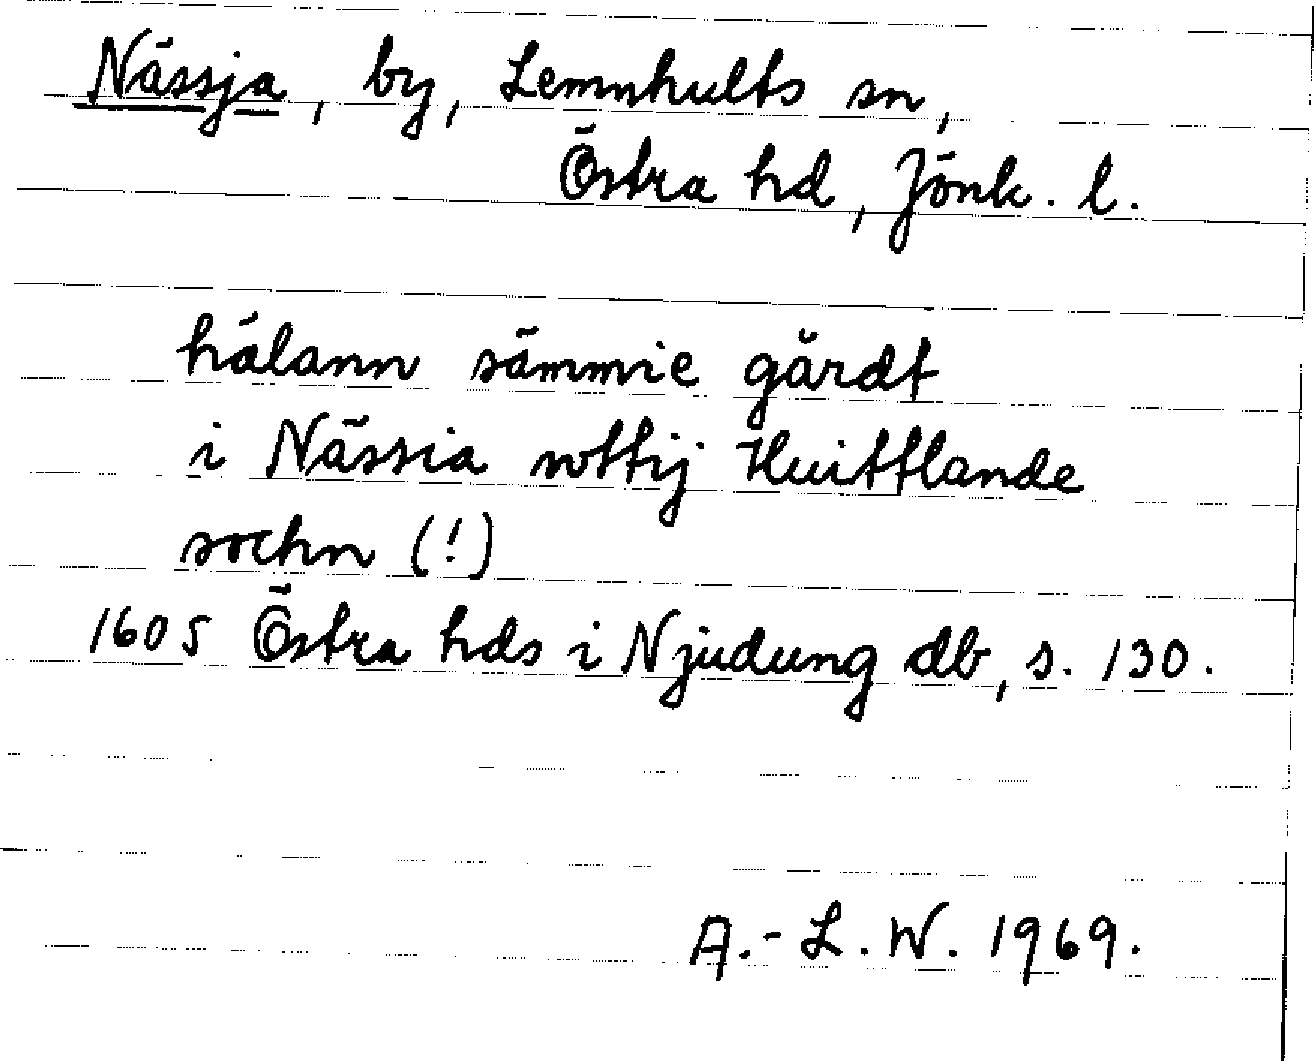 Nässja, by, Lemnhults sn,
Östra hd, Jönk. l.
hälann sämmie gårdt
i Nässia vttij Huittlande
sochn (!)
1605 Östra hds i Njudung db, s. 130.
A.-L.W. 1969.